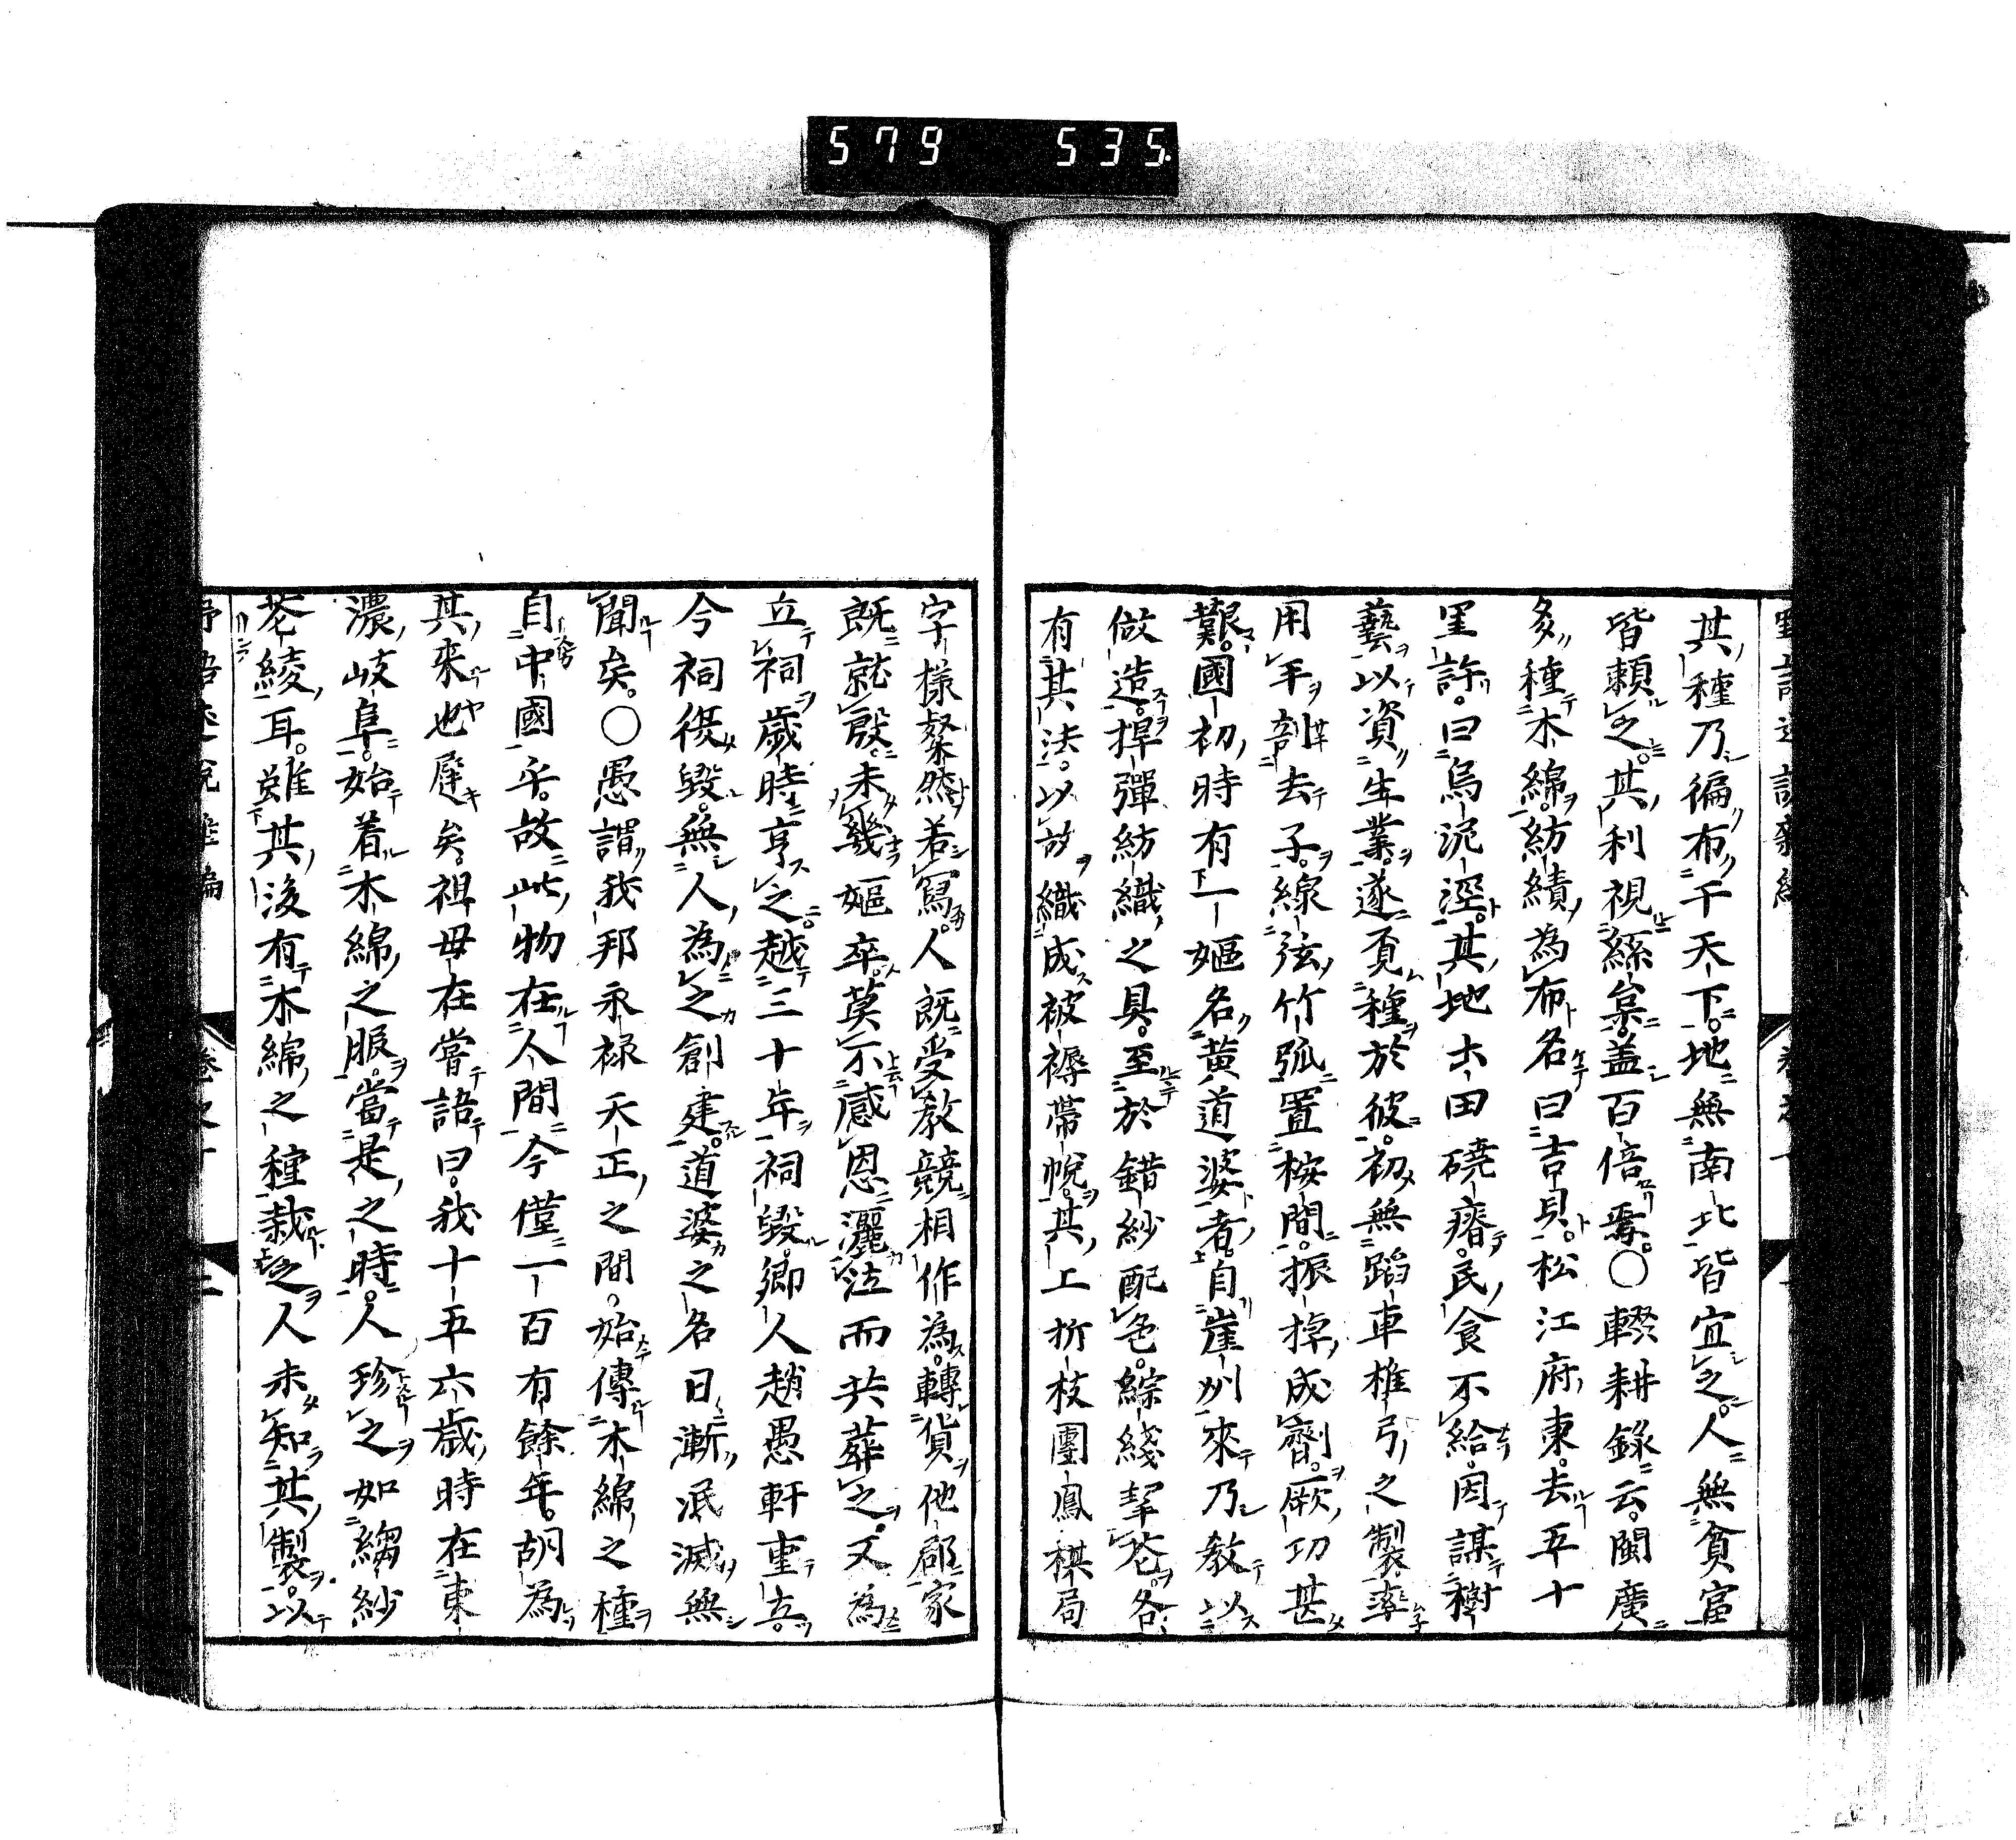 579 535
其種乃徧布于天下地無南北皆宜之人無貧富
皆頼之其利視絲枲盖百倍焉○輟耕錄云閩廣
多種木綿紡績為布名曰吉貝松江府東去五十
里許曰烏泥涇其地土田磽瘠民食不給因謀樹
藝以資生業遂覓種於彼初無蹈車椎弓之製率
用手剖去子線弦竹弧置桉間振掉成劑厥功甚
艱國初時有一嫗名黄道婆者自崖州來乃教以
做造捍彈紡織之具至於錯紗配色綜綫挈花各
有其法以故織成被褥帯帨其上折枝團鳳棋局
字様粲然若寫人既受教競相作為轉貨他郡家
既就殷未幾嫗卒莫不感恩灑泣而共葬之又為
立祠歳時享之越三十年祠毀卿人趙愚軒重立
今祠復毀無人為之創建道婆之名日漸泯滅無
聞矣○愚謂我邦永禄天正之間始傳木綿之種
自中國乎故此物在人間今僅一百有餘年胡為
其來也遅矣祖母在嘗語曰我十五六歳時在東
濃岐阜始着木綿之服當是之時人珍之如縐紗
花綾耳雖其後有木綿之種栽之人未知其製以
卷之